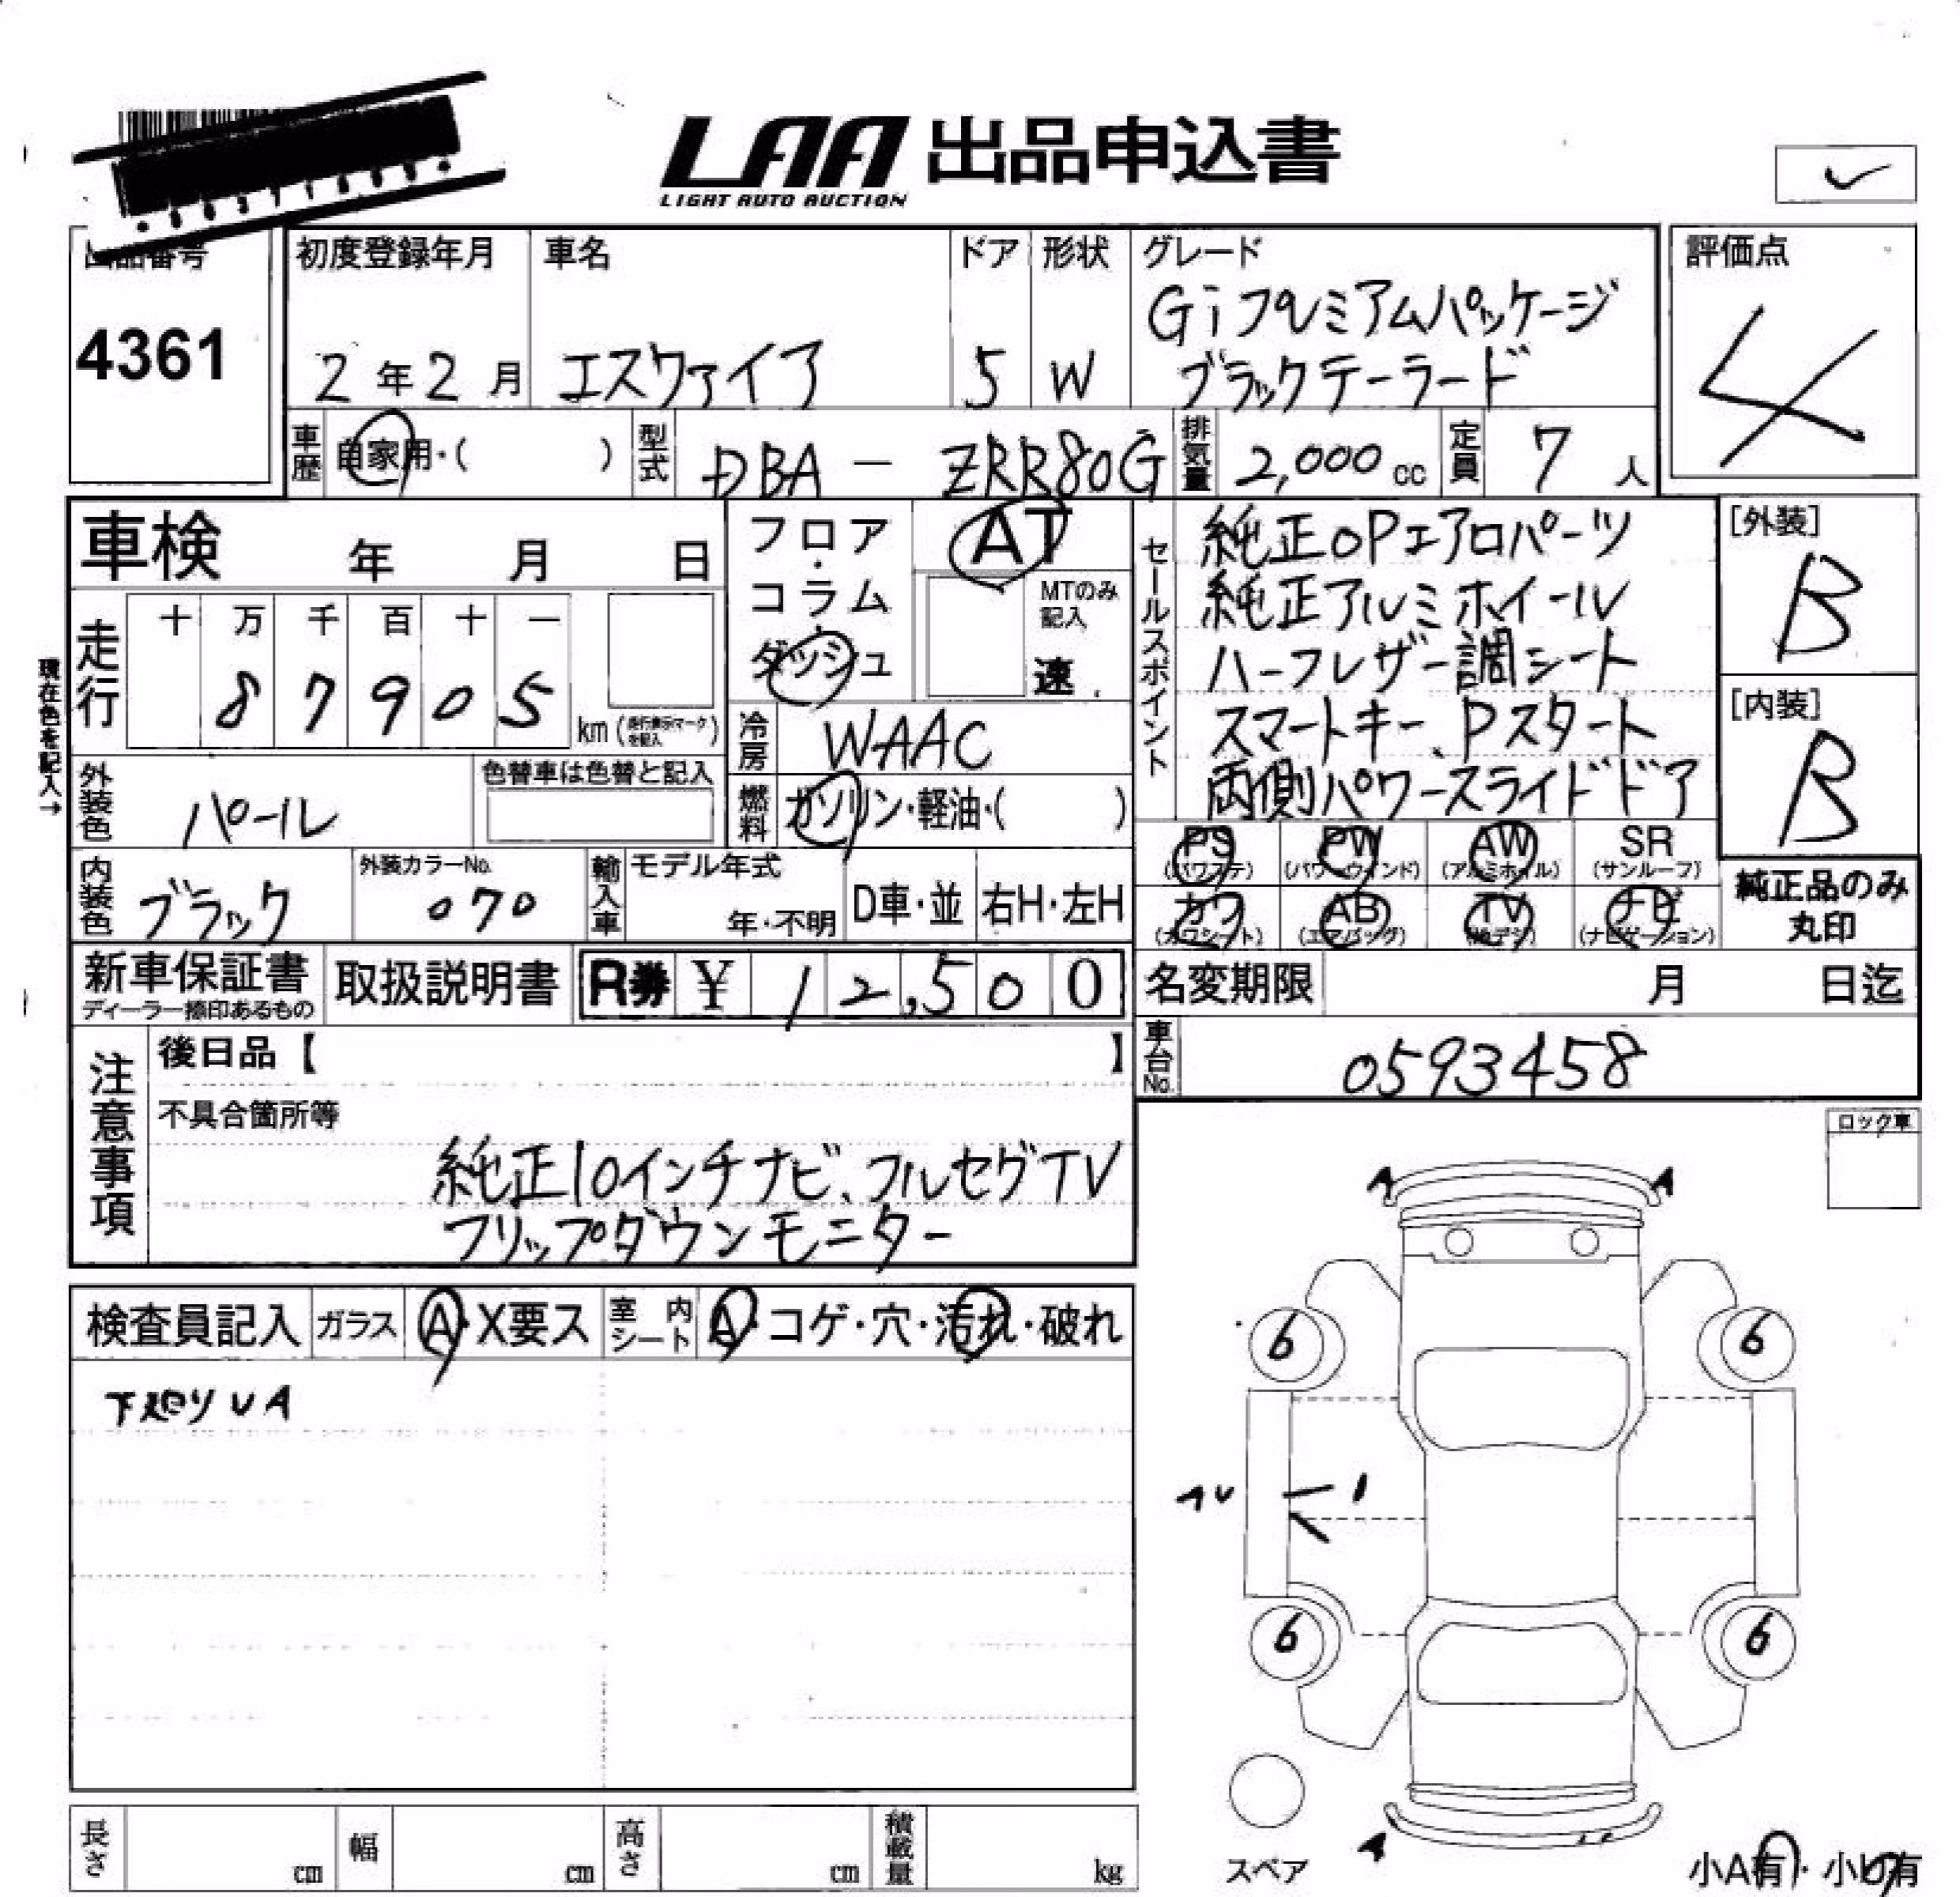 LAA 出品申込書
LIGHT AUTO AUCTION
出品番号
4361
初度登録年月
2年2月
車名
エスクァイア
ドア
5
形状
W
グレード
Giプレミアムパッケージ
ブラックテーラード
評価点
4
車歴
自家用・( )
型式
DBA - ZRR80G
排気量
2,000 cc
定員
7人
車検 年 月 日
フロア・コラム・ダッシュ
AT
MTのみ記入
速
セールスポイント
純正OPエアロパーツ
純正アルミホイール
ハーフレザー調シート
スマートキー、Pスタート
両側パワースライドドア
[外装]
B
[内装]
B
走行
十 万 千 百 十 一
8 7 9 0 5
km (走行表示マークを記入)
現在色を記入→
冷房
WAAC
外装色
パール
色替車は色替と記入
燃料
ガソリン・軽油・( )
PS (パワステ) PW (パワーウィンド) AW (アルミホイル) SR (サンルーフ)
カワ (カワシート) AB (エアバッグ) TV (地デジ) ナビ (ナビゲーション)
純正品のみ丸印
内装色
ブラック
外装カラーNo.
070
輸入車
モデル年式
年・不明
D車・並
右H・左H
新車保証書
ディーラー捺印あるもの
取扱説明書
R券 ¥ 12,500
名変期限 月 日迄
車台No.
0593458
注意事項
後日品【 】
不具合箇所等
純正10インチナビ、フルセグTV
フリップダウンモニター
ロック車
検査員記入
ガラス
A・X要ス
室内シート
A・コゲ・穴・汚れ・破れ
A
A
6
6
1
6
6
A
スペア
小A有・小U有
長さ cm
幅 cm
高さ cm
積載量 kg